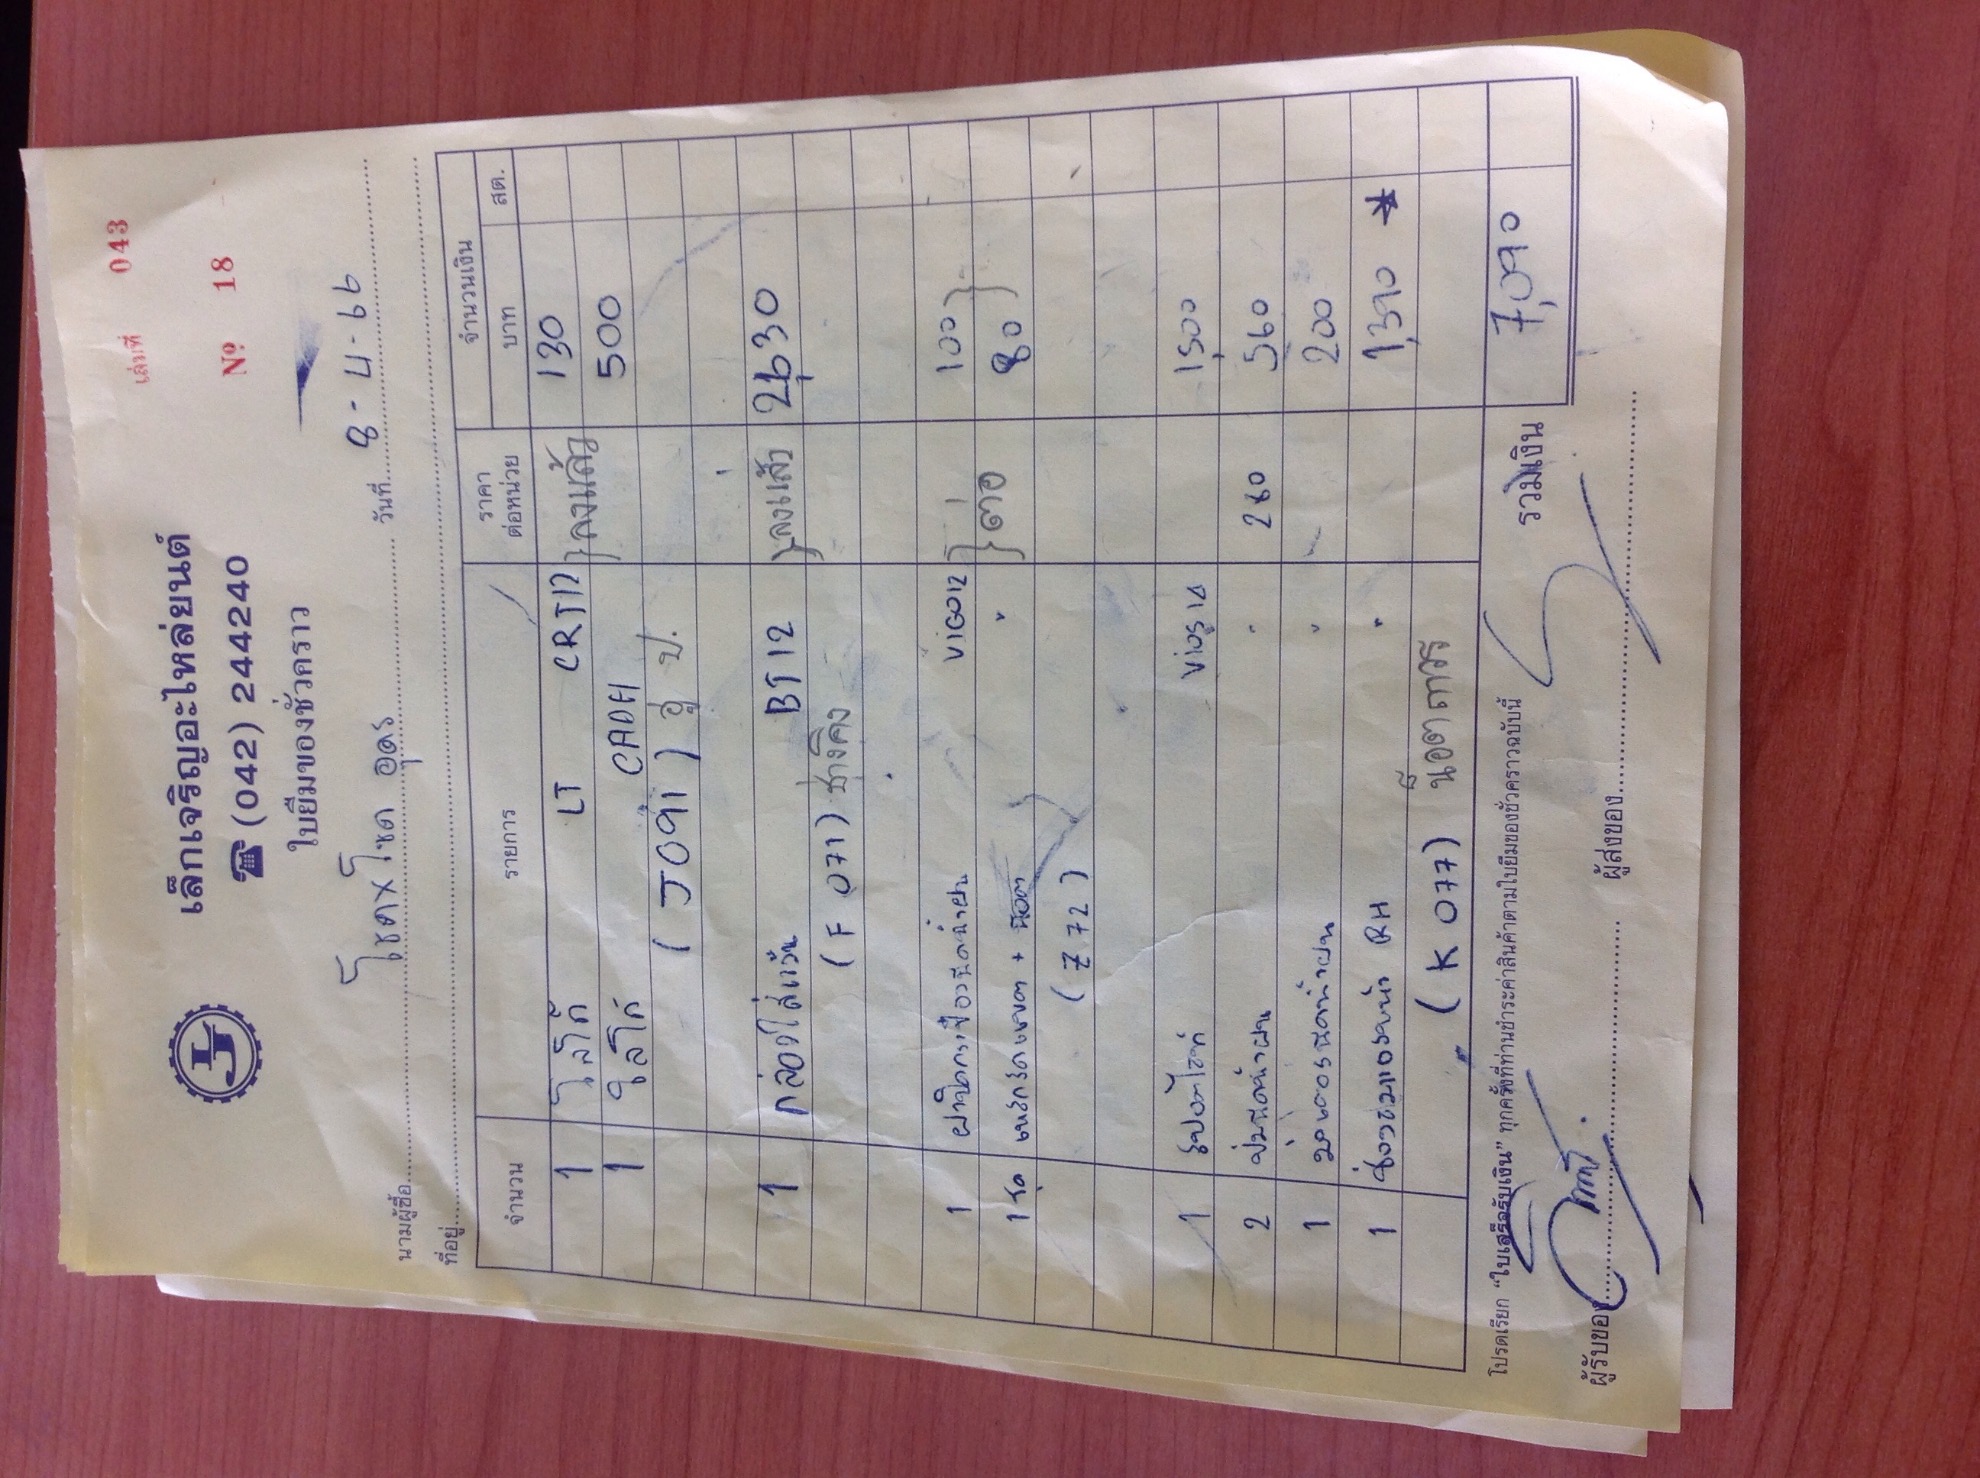 เล่มที่ 043
№ 18
LJ
เล็กเจริญอะไหล่ยนต์
☎ (042) 244240
ใบยืมของชั่วคราว
นามผู้ซื้อ โชคxโชค อุดร วันที่ 8-4-66
ที่อยู่
จำนวน รายการ ราคาต่อหน่วย จำนวนเงิน
บาท สต.
1 โลโก้ LT CRT17 } ลงแล้ว 130
1 โลโก้ CADH 500
( J091 ) อู่ ป.
1 กล่องใส่แว่น BT12 } ลงแล้ว 2,630
( F 071 ) ช่างคิง
1 ฝาปิดกระป๋องฉีดน้ำฝน VIGO12 100
1 ชุด + น็อต " } 80
( Z 72 )
1 สปอตไลท์ 1,500
2 ปั๊มฉีดน้ำฝน " 280 560
1 ฉีดน้ำฝน " 200
1 RH " 1,390 *
( K 077 )
รวมเงิน 7,090
โปรดเรียก "ใบเสร็จรับเงิน" ทุกครั้งที่ท่านชำระค่าสินค้าตามใบยืมของชั่วคราวฉบับนี้
ผู้รับของ ผู้ส่งของ